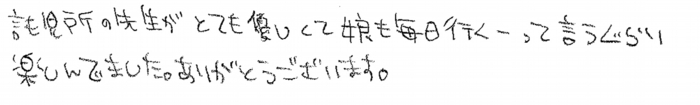 託児所の先生がとても優しくて娘も毎日行くーって言うぐらい
楽しんでました。ありがとうございます。